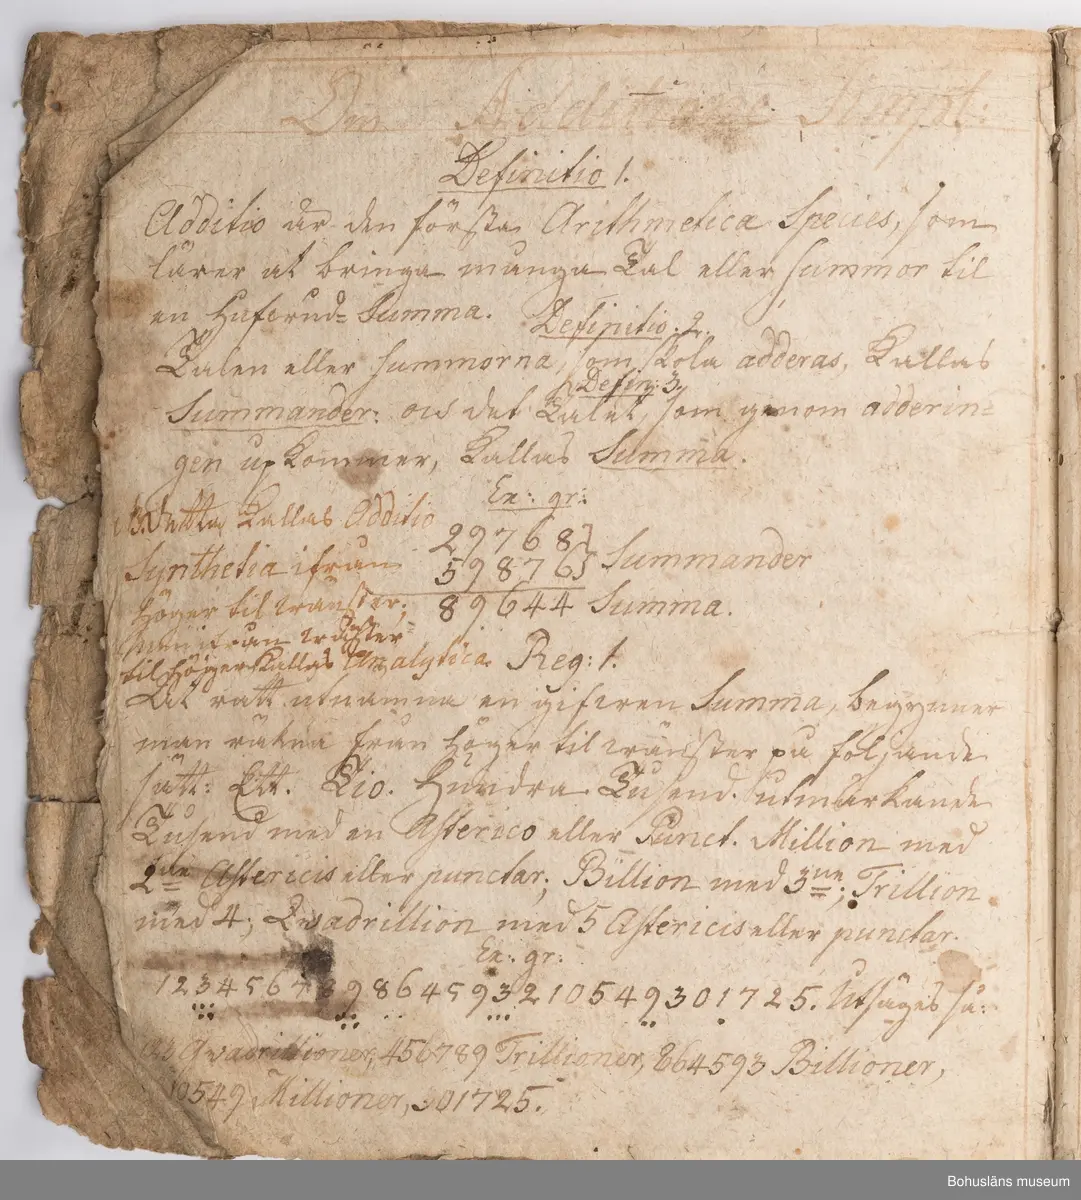 Den Additione Simpl:
Definitio 1.
Additio är den första Arithmetica Species, som
lärer at bringa många Tal eller summor til
en Hufwud=Summa. Definitio. 2.
Talen eller summorna, som skola adderas, kallas
Summander: och det Talet, som genom adderin=
Defin: 3.
gen upkommer, kallas Summa.
Ex: gr:
NB. Detta kallas Additio
Synthetia ifrån
höger til wänster:
men ifrån wänster
til höger kallas Analytica.
29768
59876 } Summander
89644 Summa.
Reg: 1.
At rätt utnämna en gifwen Summa, begynner
man räkna från höger til wänster på följande
sätt: Ett. Tio. Hundra. Tusend. utmärkande
Tusend med en Asterico eller Punct. Million med
2ne Astericis eller punctar; Billion med 3ne; Trillion
med 4; Qvadrillion med 5 Astericis eller punctar.
Ex: gr:
123456789864593210549301725. Utsäges så:
123 Qvadrillioner, 456789 Trillioner, 864593 Billioner,
210549 Millioner, 301725.
Bohusläns museum